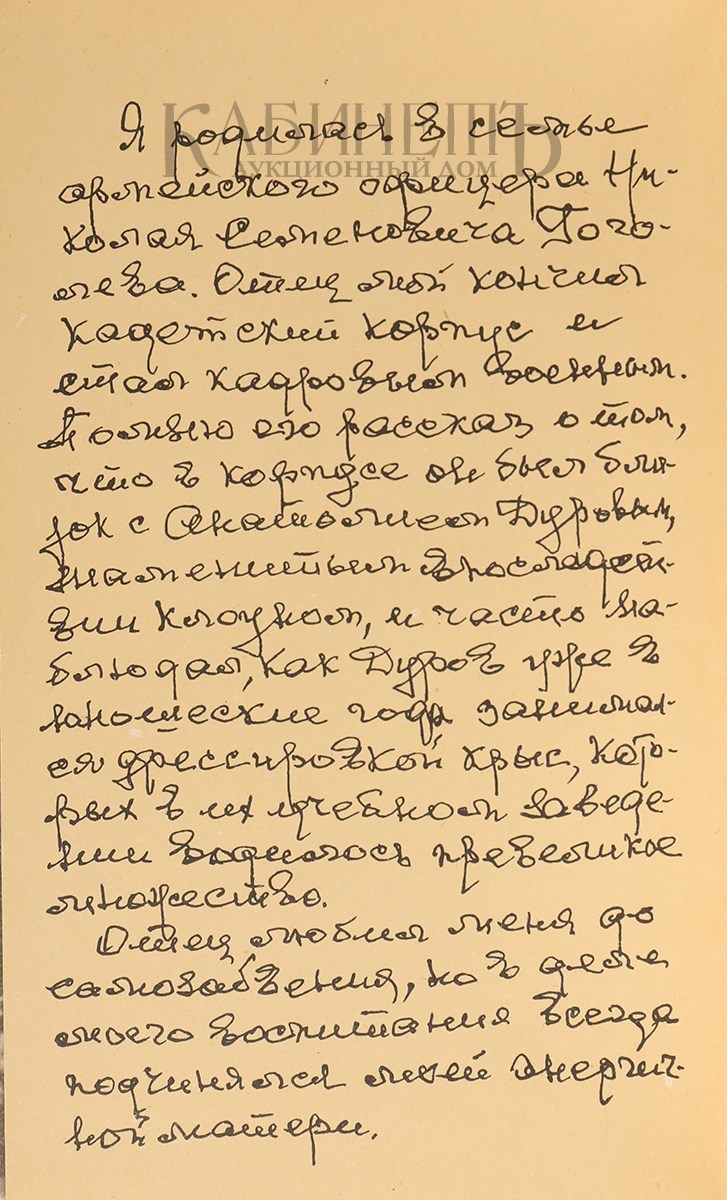 КАБИНЕТЪ
АУКЦИОННЫЙ ДОМ
Я родилась в семье
армейского офицера Ни-
колая Семеновича Гого-
лева. Отец мой кончил
кадетский корпус и
стал кадровым военным.
Помню его рассказ о том,
что в корпусе он был бли-
зок с Анатолием Дуровым,
знаменитым впоследст-
вии клоуном, и часто на-
блюдал, как Дуров уже в
юношеские года занимал-
ся дрессировкой крыс, кото-
рых в их учебном заведе-
нии водилось превеликое
множество.
Отец любил меня до
самозабвения, но в деле
моего воспитания всегда
подчинялся моей энергич-
ной матери.